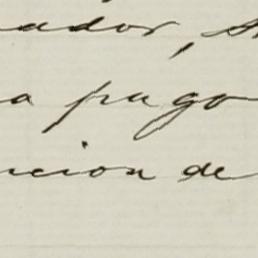 ador, 
a pago
cion de